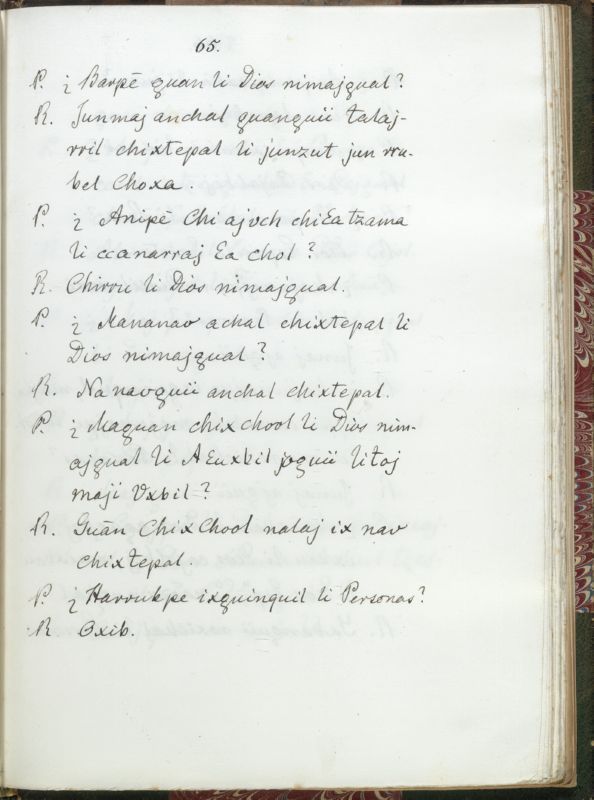 65.
P. ¿ Barpē quan li Dios nimajqual?
R. Junmaj anchal quanquii talaj-
rril chixtepal li junzut jun rru-
bel Choxa.
P. ¿ Anipē Chi ajvch chiɛatzama
li ccanarraj ɛa chol?
R. Chirru li Dios nimajqual.
P. ¿ Mananao achal chixtepal li
Dios nimajqual?
R. Na naoquii anchal chixtepal.
P. ¿ Maquan chix chool li Dios nim-
ajqual li Aɛuxbil joquii litoj
maji Vxbil?
R. Guān Chix Chool nalaj ix nao
chixtepal.
P. ¿ Harrukpe ixquinquil li Personas?
R Oxib.